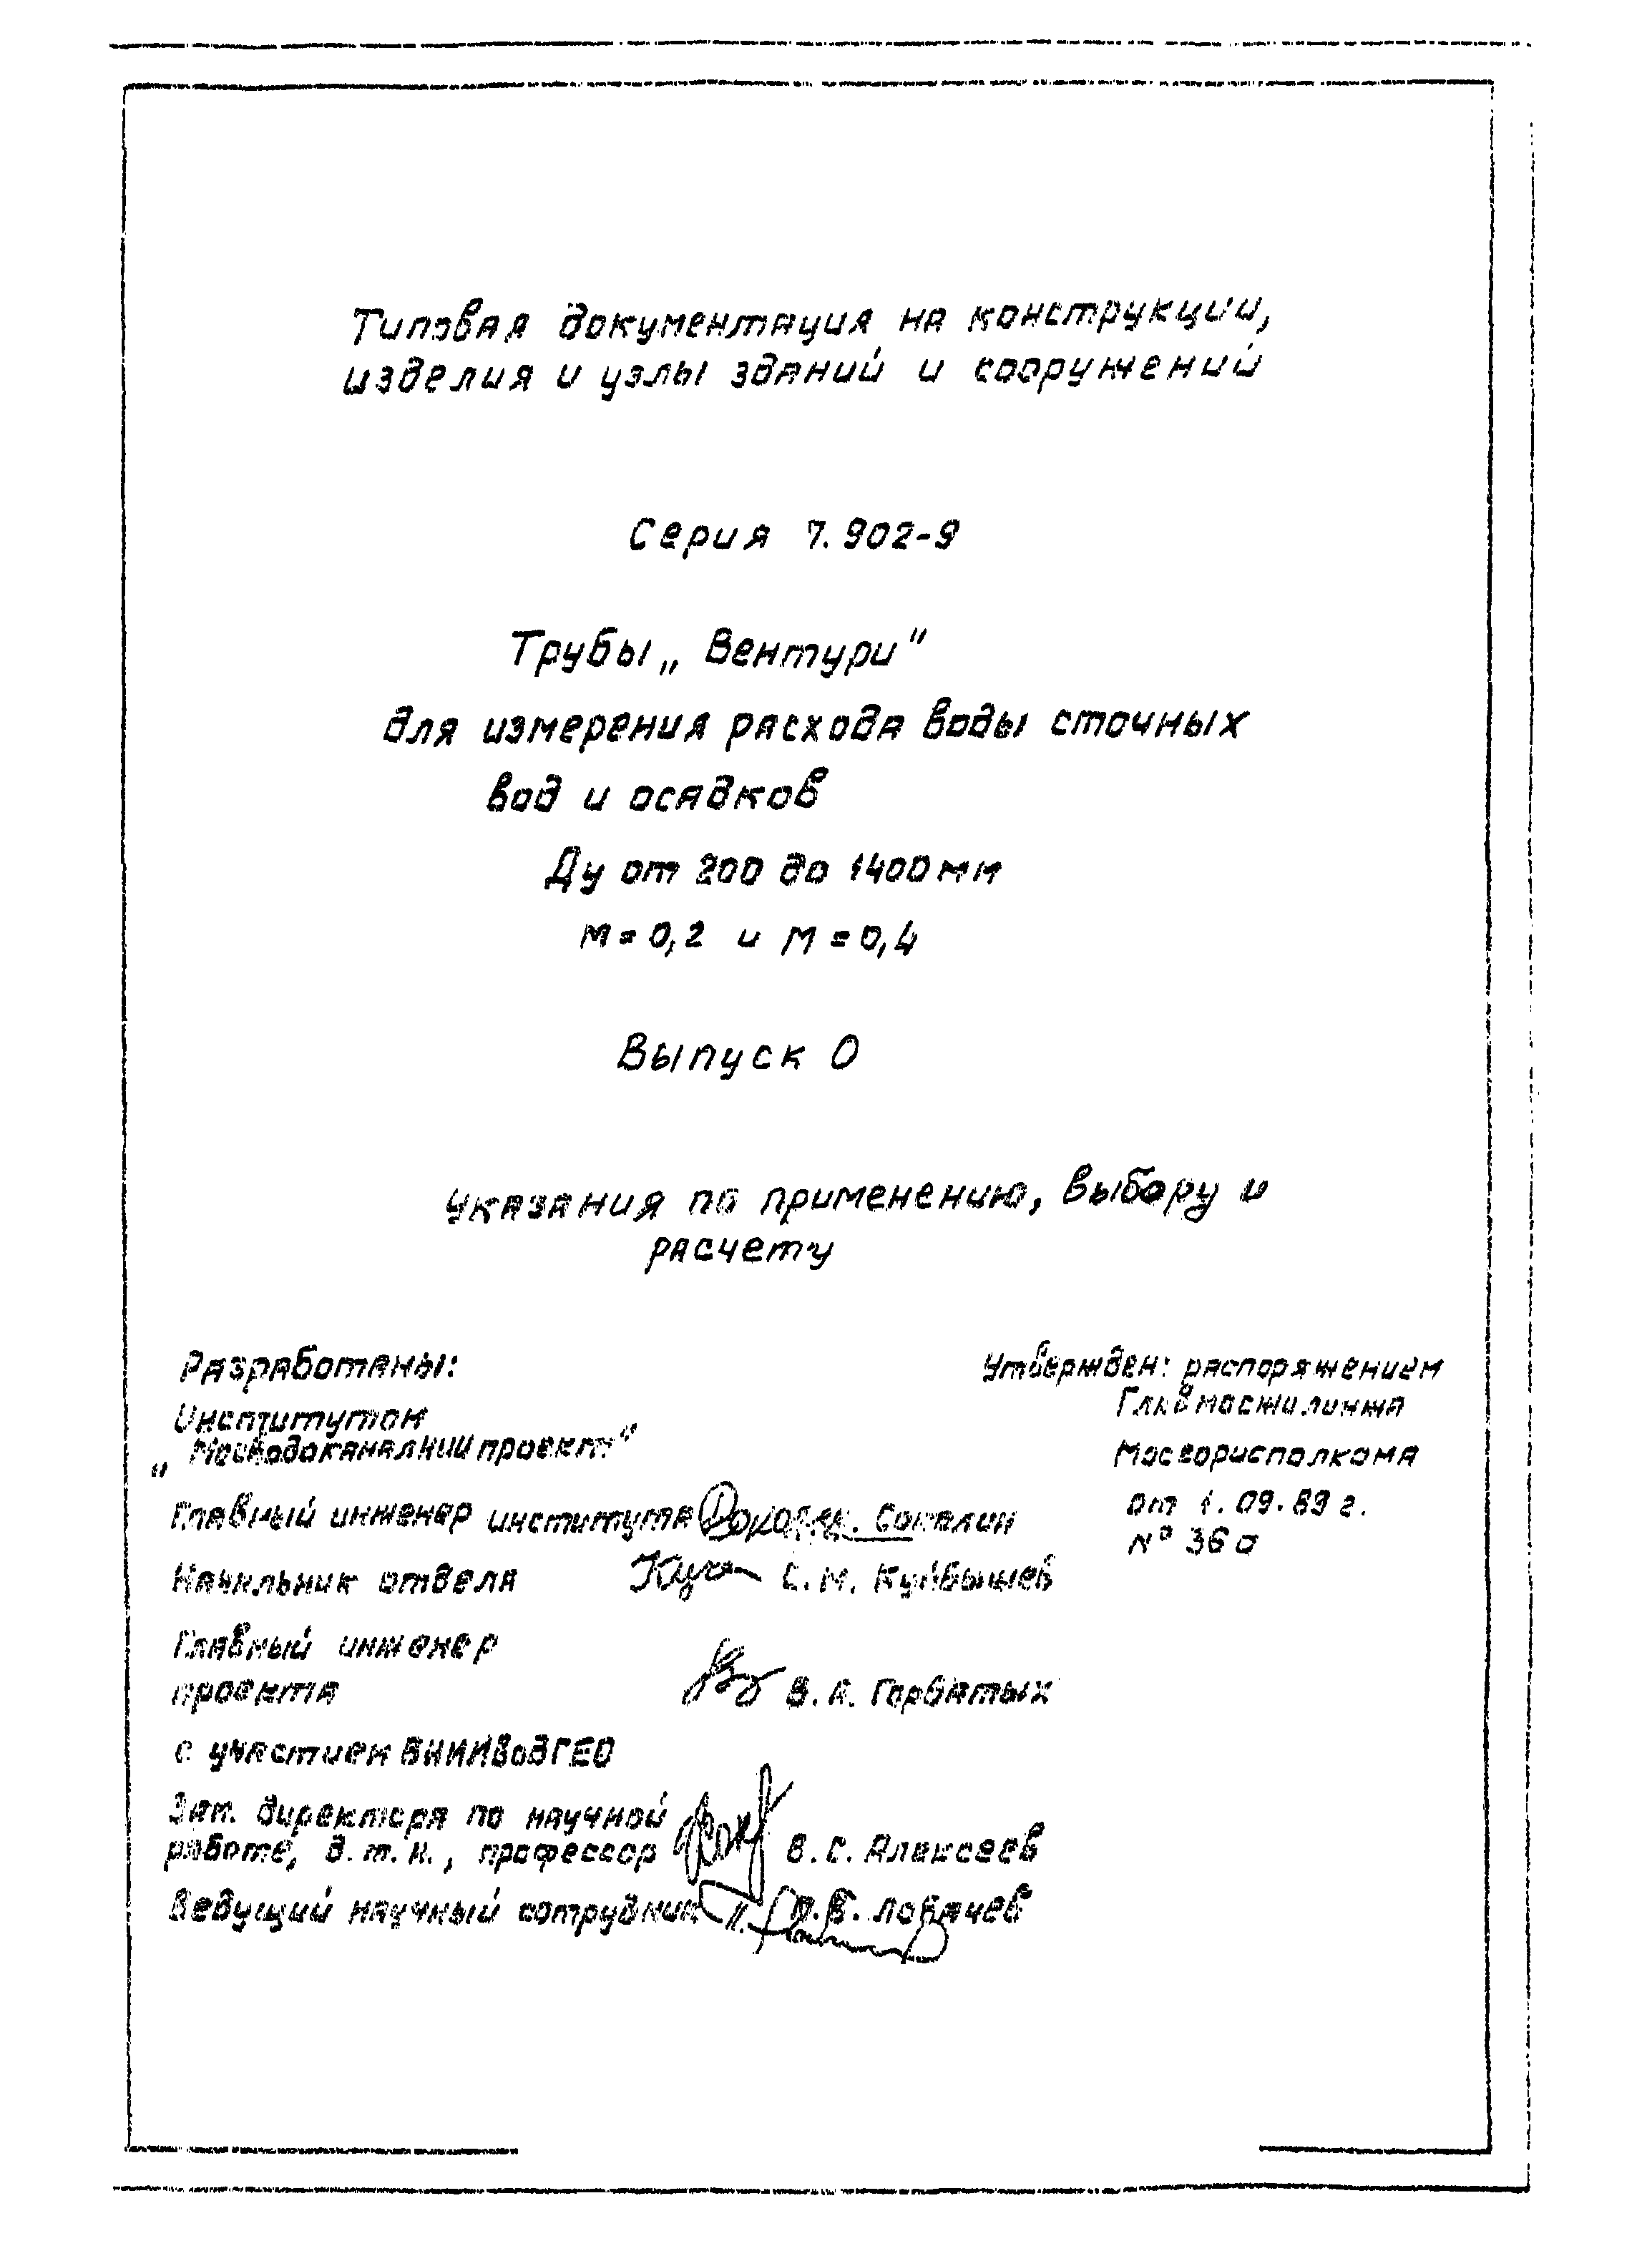 Типовая документация на конструкции,
изделия и узлы зданий и сооружений
Серия 7.902-9
Трубы „Вентури"
для измерения расхода воды сточных
вод и осадков
Ду от 200 до 1400мм
м=0,2 и м=0,4
Выпуск 0
Указания по применению, выбору и
расчету
Разработаны:
Институтом
„Мосводоканалниипроект"
Главный инженер института Соколин
Начальник отдела С.М. Куйбышев
Главный инженер
проекта В.А. Горбатых
с участием ВНИИВодГЕО
Зам. директора по научной
работе, д.т.н., профессор В.С. Алексеев
Ведущий научный сотрудник П.В. Лобачев
Утвержден: распоряжением
Главмосжилинжа
Мосгорисполкома
от 1.09.89г.
N° 36а